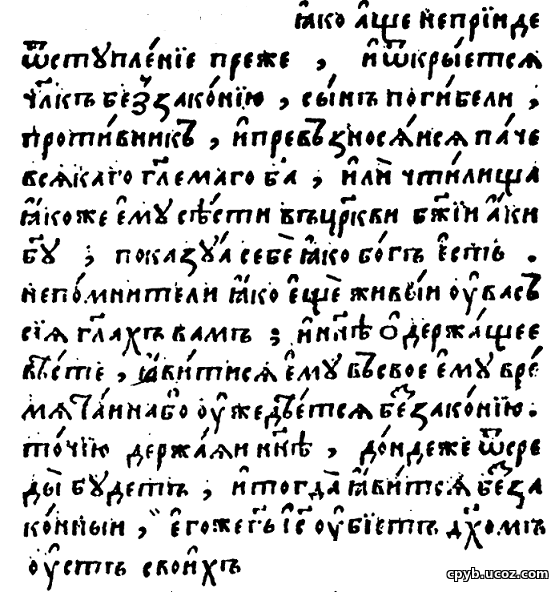 ꙗ҆́ко а҆́ще неприи́де
ѿступле́нїе преже , и҆ѿкры́етсѧ
чл҃къ без̾зако́нїю , сы́нъ поги́бели ,
проти́вникъ , и҆превъзносѧ́исѧ па́че
всѧ́каго гл҃емаго ба҃ , и҆лѝ чти́лища
ꙗ҆́коже є҆мꙋ сѣ́сти въцр҃кви бж҃їи а҆́ки
бг҃ꙋ ; показꙋ́ѧ себѐ ꙗ҆́ко бо́гъ є҆́сть .
непо́мнители ꙗ҆́ко є҆щѐ живы́и оу҆васъ
сїѧ̀ гл҃ахъ вамъ ; и҆нн҃ѣ ѻ҆держа́щее
вѣ́сте , ꙗ҆ви́тисѧ є҆мꙋ въсвое є҆мꙋ вре́
мѧ та́инабо оу҆жедѣ́етсѧ без̾зако́нїю .
то́чїю держа́ѧи нн҃ѣ , до́ндеже ѿсре
ды̀ бꙋ́детъ , и҆тогда̀ ꙗ҆ви́тсѧ без̾за
ко́нныи , є҆гоже гь҃ і҆с҃ оу҆бїе́тъ дх҃омъ
оу҆стъ свои҆́хъ
cpyb.ucoz.com